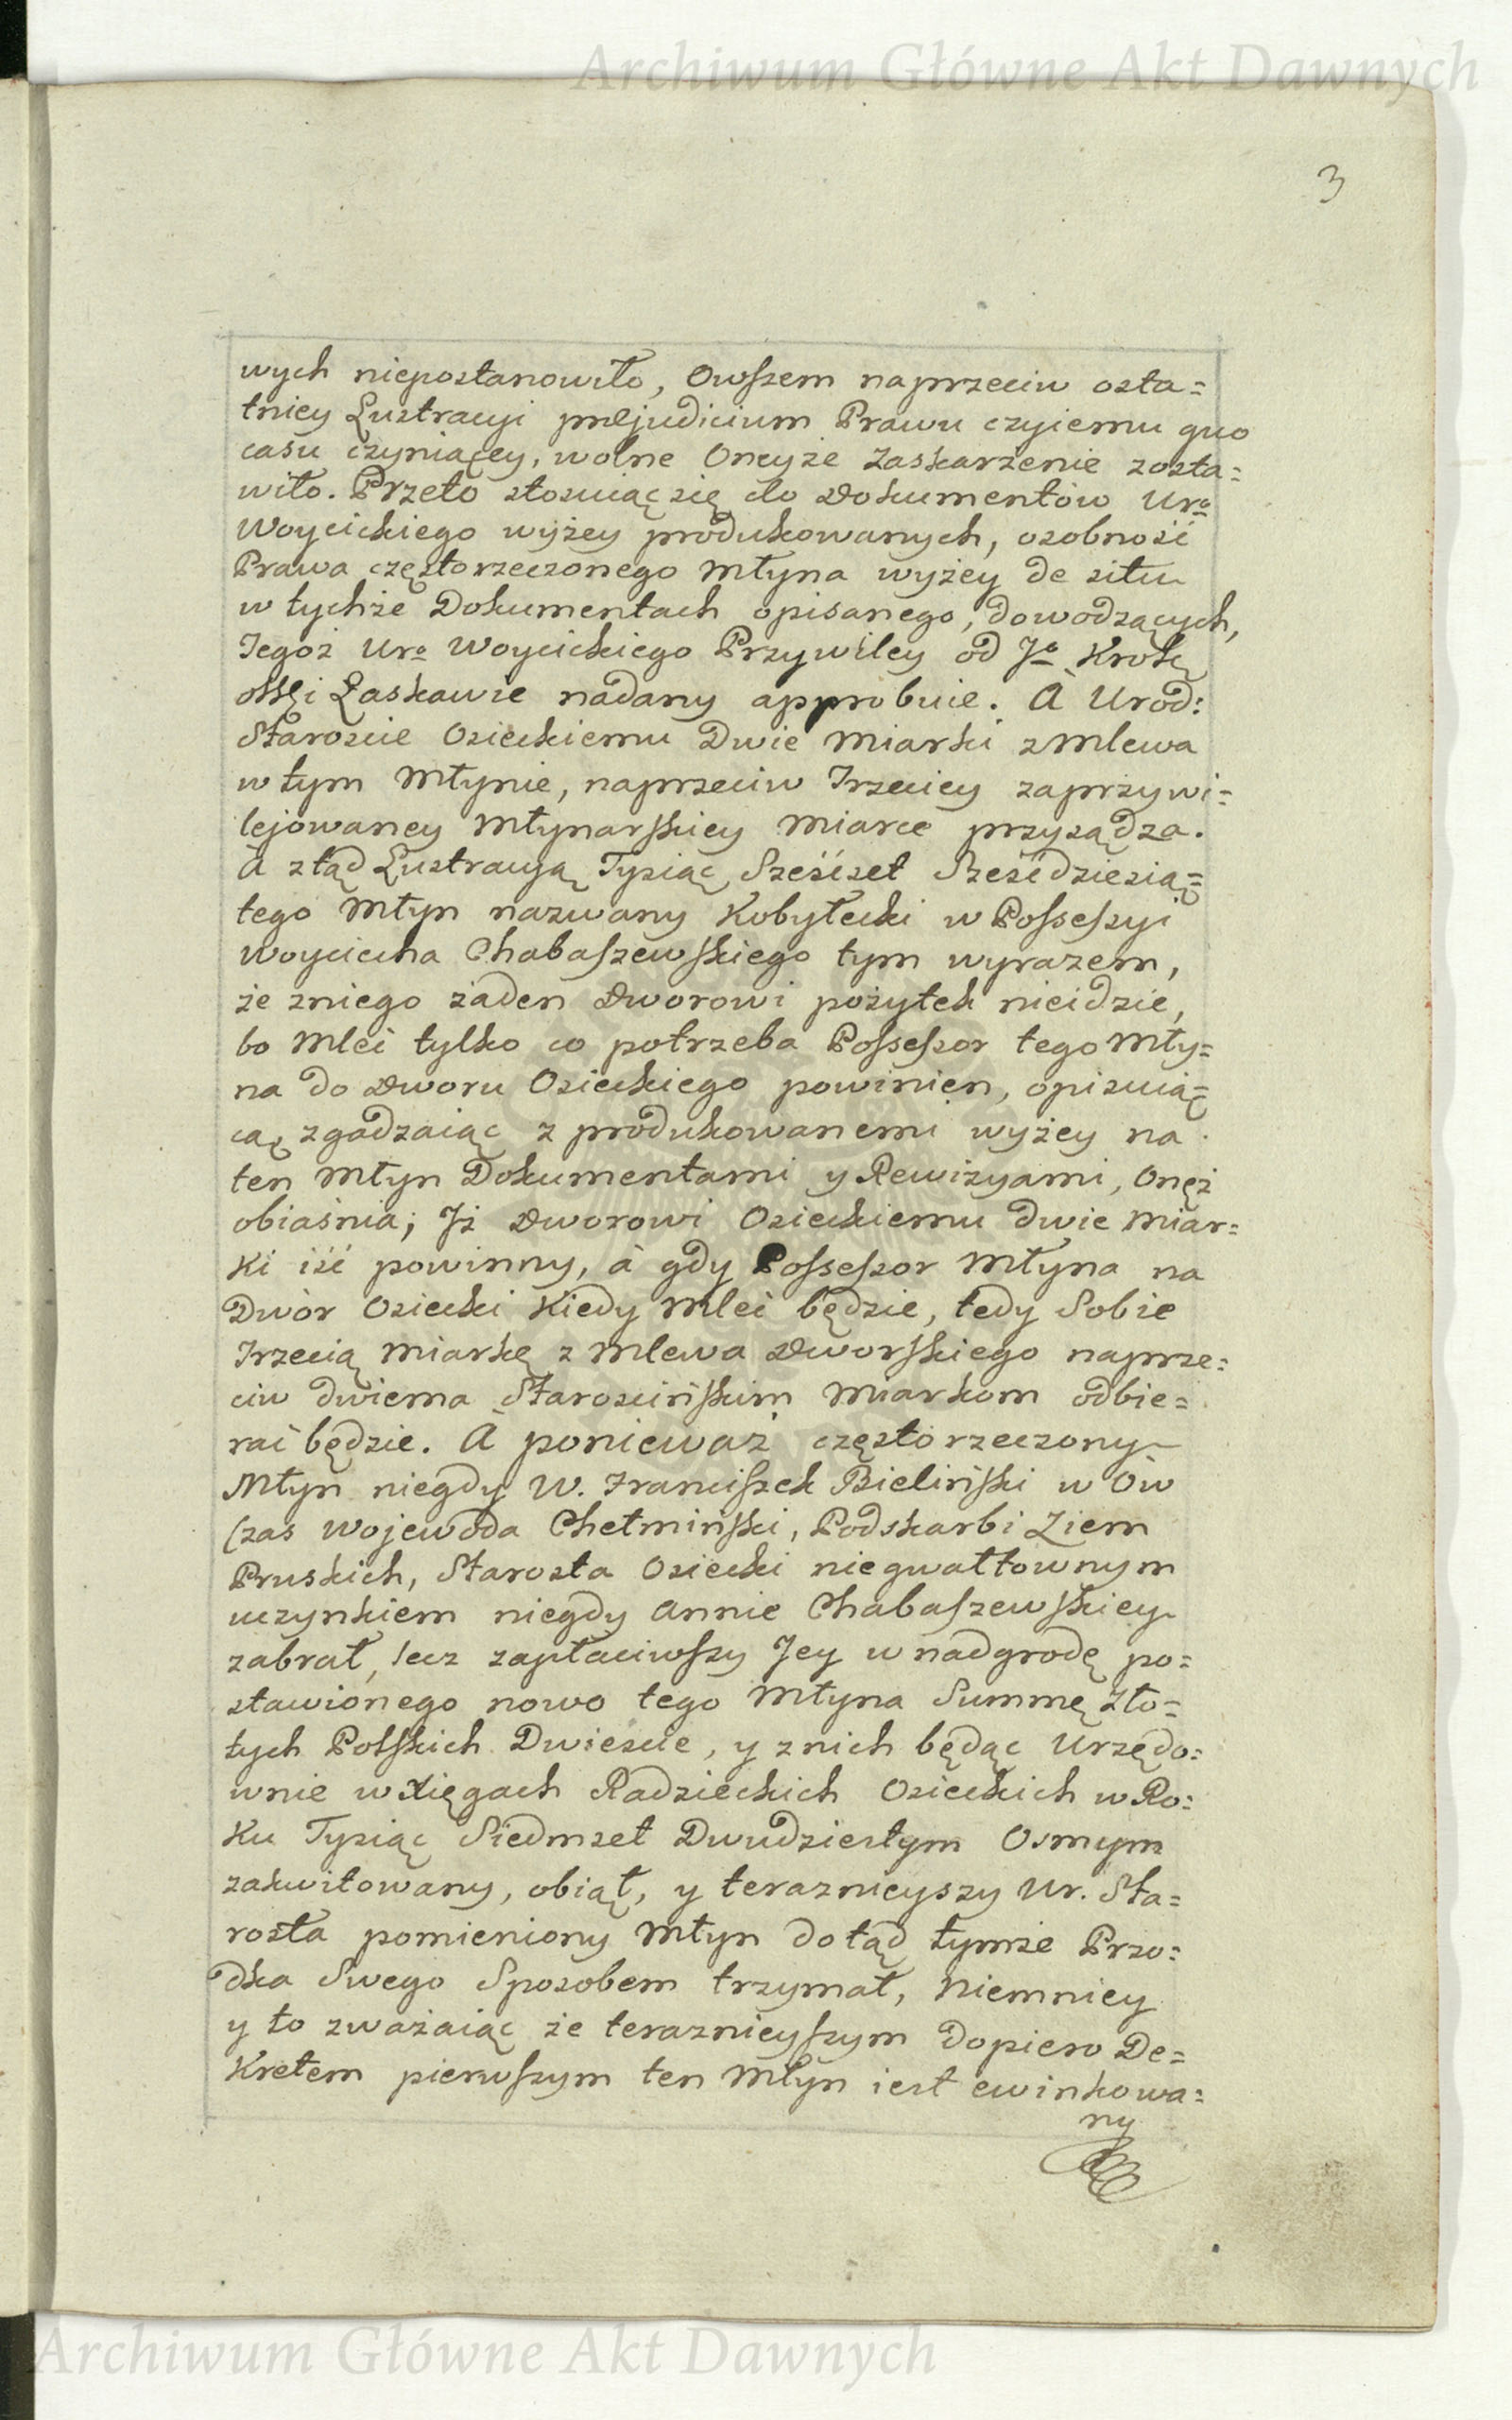 Archiwum Główne Akt Dawnych
3
wych niepostanowiło, Owszem naprzeciw osta=
tniey Lustracyi præjudicium Prawu czyiemu quo
casu czyniącey, wolne Oneyże Zaskarżenie zosta=
wiło. Przeto stosuiąc się do Dokumentów Uro
Woycickiego wyżey produkowanych, osobność
Prawa częstorzeczonego Młyna wyżey de situ
w tychże Dokumentach opisanego, dowodzących,
Tegoż Uro Woycickiego Przywiley od Jo Krolę
Mści Łaskawie nadany approbuie. A Urod:
Staroscie Osieckiemu Dwie Miarki z Mlewa
w tym Młynie, naprzeciw Trzeciey zaprzywi=
lejowaney Młynarskiey Miarce przysądza.
A ztąd Lustracyą Tysiąc Sześćset Sześćdziesią=
tego Młyn nazwany Kobyłecki w Possessyi
Woyciecha Chabaszewskiego tym wyrazem,
że zniego żaden Dworowi pożytek nieidzie,
bo Mleć tylko co potrzeba Possessor tego Mły=
na do Dworu Osieckiego powinien, opisuią=
cą, zgadzaiąc z produkowanemi wyżey na
ten Młyn Dokumentami y Rewizyami, Onęż
obiaśnia; Jż Dworowi Osieckiemu dwie Miar=
ki iść powinny, à gdy Possessor Młyna na
Dwór Osiecki Kiedy Mleć będzie, tedy Sobie
Trzecią Miarkę z Mlewa Dworskiego naprze=
ciw dwiema Starościńskim Miarkom odbie=
rać będzie. A ponieważ częstorzeczony
Młyn niegdy W. Franciszek Bieliński w Ów
Czas Wojewoda Chełmiński, Podskarbi Ziem
Pruskich, Starosta Osiecki niegwałtownym
uczynkiem niegdy Annie Chabaszewskiey
zabrał, lecz zapłaciwszy Jey w nadgrodę po=
stawionego nowo tego Młyna Summę Zło=
tych Polskich Dwieście, y z nich będąc Urzędo=
wnie w Xięgach Radzieckich Osieckich w Ro=
ku Tysiąc Siedmset Dwudziestym Osmym
zakwitowany, obiął, y teraznieyszy Ur. Sta=
rosta pomieniony Młyn dotąd tymże Przo=
dka Swego Sposobem trzymał, Niemniey
y to zważaiąc że teraznieyszym dopiero De=
kretem pierwszym ten Młyn iest ewinkowa=
ny
Archiwum Główne Akt Dawnych